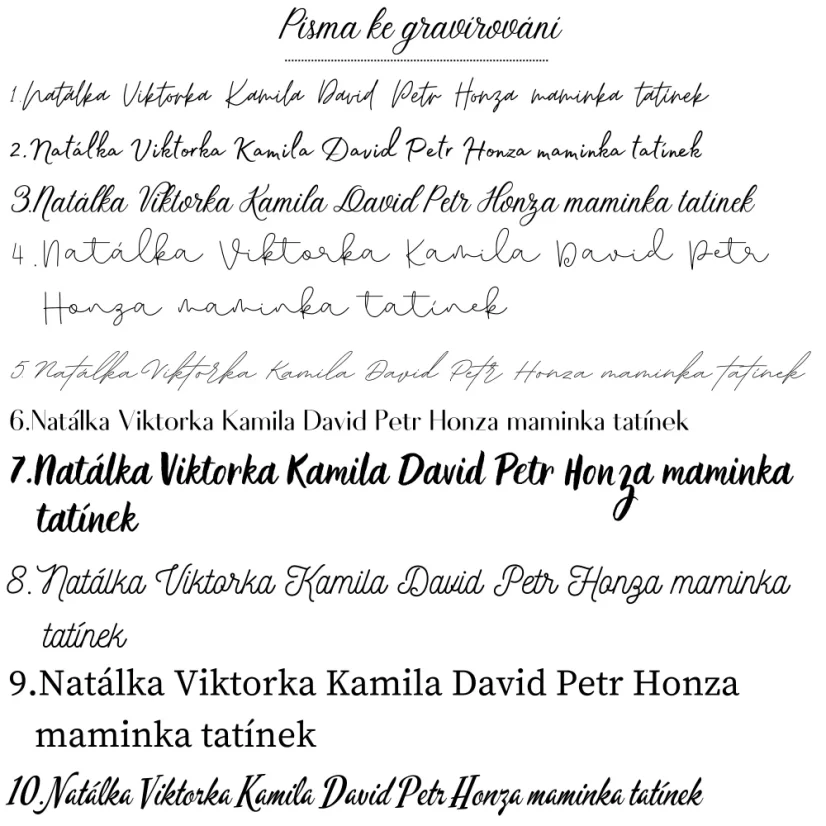 Písma ke gravírování
1.Natálka Viktorka Kamila David Petr Honza maminka tatínek
2.Natálka Viktorka Kamila David Petr Honza maminka tatínek
3.Natálka Viktorka Kamila David Petr Honza maminka tatínek
4.Natálka Viktorka Kamila David Petr
Honza maminka tatínek
5.Natálka Viktorka Kamila David Petr Honza maminka tatínek
6.Natálka Viktorka Kamila David Petr Honza maminka tatínek
7.Natálka Viktorka Kamila David Petr Honza maminka
tatínek
8.Natálka Viktorka Kamila David Petr Honza maminka
tatínek
9.Natálka Viktorka Kamila David Petr Honza
maminka tatínek
10.Natálka Viktorka Kamila David Petr Honza maminka tatínek